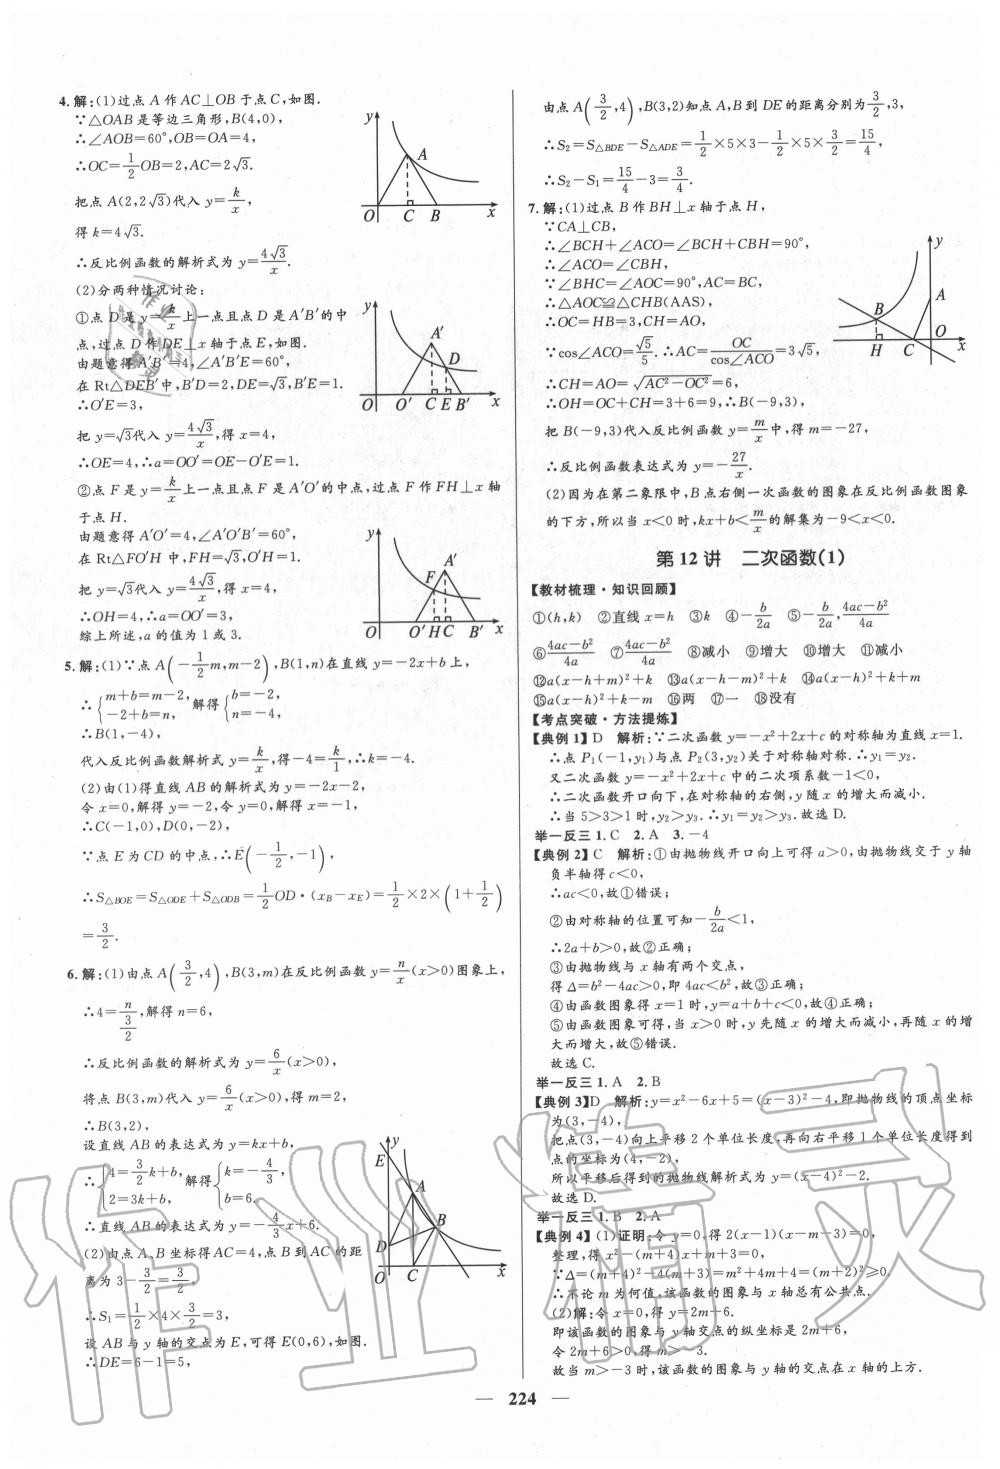 4.解:(1)过点A作AC⊥OB于点C,如图.
∵△OAB是等边三角形,B(4,0),
∴∠AOB=60°,OB=OA=4,
∴OC=1/2OB=2,AC=2√3.
把点A(2,2√3)代入y=k/x,
得k=4√3.
∴反比例函数的解析式为y=4√3/x.
(2)分两种情况讨论:
①点D是y=k/x上一点且点D是A′B′的中
点,过点D作DE⊥x轴于点E,如图.
由题意得A′B′=4,∠A′B′E=60°,
在Rt△DEB′中,B′D=2,DE=√3,B′E=1.
∴O′E=3,
把y=√3代入y=4√3/x,得x=4,
∴OE=4,∴a=OO′=OE-O′E=1.
②点F是y=k/x上一点且点F是A′O′的中点,过点F作FH⊥x轴
于点H.
由题意得A′O′=4,∠A′O′B′=60°,
在Rt△FO′H中,FH=√3,O′H=1.
把y=√3代入y=4√3/x,得x=4,
∴OH=4,∴a=OO′=3,
综上所述,a的值为1或3.
5.解:(1)∵点A(-1/2m,m-2),B(1,n)在直线y=-2x+b上,
∴{m+b=m-2, -2+b=n, 解得{b=-2, n=-4,
∴B(1,-4),
代入反比例函数解析式y=k/x,得-4=k/1,∴k=-4.
(2)由(1)得直线AB的解析式为y=-2x-2,
令x=0,解得y=-2,令y=0,解得x=-1,
∴C(-1,0),D(0,-2),
∵点E为CD的中点,∴E(-1/2,-1),
∴S△BOE=S△ODE+S△ODB=1/2OD·(xB-xE)=1/2×2×(1+1/2)
=3/2.
6.解:(1)由点A(3/2,4),B(3,m)在反比例函数y=n/x(x>0)图象上,
∴4=n/(3/2),解得n=6,
∴反比例函数的解析式为y=6/x(x>0),
将点B(3,m)代入y=6/x(x>0),得m=2,
∴B(3,2),
设直线AB的表达式为y=kx+b,
∴{4=3/2k+b, 2=3k+b, 解得{k=-4/3, b=6.
∴直线AB的表达式为y=-4/3x+6.
(2)由点A、B坐标得AC=4,点B到AC的距
离为3-3/2=3/2,
∴S₁=1/2×4×3/2=3,
设AB与y轴的交点为E,可得E(0,6),如图.
∴DE=6-1=5,
由点A(3/2,4),B(3,2)知点A,B到DE的距离分别为3/2,3,
∴S₂=S△BDE-S△ADE=1/2×5×3-1/2×5×3/2=15/4,
∴S₂-S₁=15/4-3=3/4.
7.解:(1)过点B作BH⊥x轴于点H,
∵CA⊥CB,
∴∠BCH+∠ACO=∠BCH+∠CBH=90°,
∴∠ACO=∠CBH,
∵∠BHC=∠AOC=90°,AC=BC,
∴△AOC≌△CHB(AAS),
∴OC=HB=3,CH=AO,
∵cos∠ACO=√5/5.∴AC=OC/cos∠ACO=3√5,
∴CH=AO=√(AC²-OC²)=6,
∴OH=OC+CH=3+6=9,∴B(-9,3),
把B(-9,3)代入反比例函数y=m/x中,得m=-27,
∴反比例函数表达式为y=-27/x.
(2)因为在第二象限中,B点右侧一次函数的图象在反比例函数图象
的下方,所以当x<0时,kx+b<m/x的解集为-9<x<0.
第12讲 二次函数(1)
【教材梳理·知识回顾】
①(h,k) ②直线x=h ③k ④-b/2a ⑤-b/2a,(4ac-b²)/4a
⑥(4ac-b²)/4a ⑦(4ac-b²)/4a ⑧减小 ⑨增大 ⑩增大 ⑪减小
⑫a(x-h+m)²+k ⑬a(x-h-m)²+k ⑭a(x-h)²+k+m
⑮a(x-h)²+k-m ⑯两 ⑰一 ⑱没有
【考点突破·方法提炼】
【典例1】D 解析:∵二次函数y=-x²+2x+c的对称轴为直线x=1.
∴点P₁(-1,y₁)与点P₂(3,y₂)关于对称轴对称.∴y₁=y₂.
又二次函数y=-x²+2x+c中的二次项系数-1<0,
∴二次函数开口向下,在对称轴的右侧,y随x的增大而减小.
∴当5>3>1时,y₂>y₃.∴y₁=y₂>y₃.故选D.
举一反三1.C 2.A 3.-4
【典例2】C 解析:①由抛物线开口向上可得a>0,由抛物线交于y轴
负半轴得c<0,
∴ac<0,故①错误;
②由对称轴的位置可知-b/2a<1,
∴2a+b>0,故②正确;
③由抛物线与x轴有两个交点,
得Δ=b²-4ac>0,即4ac<b²,故③正确;
④由函数图象得x=1时,y=a+b+c<0,故④正确;
⑤由函数图象可得,当x>0时,y先随x的增大而减小,再随x的增
大而增大,故⑤错误.
故选C.
举一反三1.A 2.B
【典例3】D 解析:y=x²-6x+5=(x-3)²-4,即抛物线的顶点坐标
为(3,-4),
把点(3,-4)向上平移2个单位长度,再向右平移1个单位长度得到
点的坐标为(4,-2),
所以平移后得到的抛物线解析式为y=(x-4)²-2.
故选D.
举一反三1.B 2.A
【典例4】(1)证明:令y=0,得2(x-1)(x-m-3)=0,
整理,得x²-(m+4)x+m+3=0,
∵Δ=(m+4)²-4(m+3)=m²+4m+4=(m+2)²≥0.
∴不论m为何值,该函数的图象与x轴总有公共点.
(2)解:令x=0,得y=2m+6.
即该函数的图象与y轴交点的纵坐标是2m+6,
令2m+6>0,得m>-3.
故当m>-3时,该函数的图象与y轴的交点在x轴的上方.
— 224 —
作业精灵